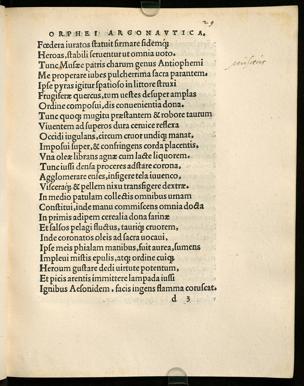 29
ORPHEI ARGONAVTICA.
Fœdera iuratos statuit firmare fidemq;
Heroas, stabili seruentur ut omnia uoto.
Tunc Musæe patris charum genus Antiophemi
Me properare iubes pulcherrima sacra parantem.
Ipse pyras igitur spatioso in littore struxi
Frugiferæ quercus, tum uestes desuper amplas
Ordine composui, dis conuenientia dona.
Tunc quoq; mugitu præstantem & robore taurum
Viuentem ad superos dura ceruice reflexa
Occidi iugulans, circum cruor undiq; manat,
Imposui super, & confringens corda placentis,
Vna oleæ librans agnæ cum lacte liquorem.
Tunc iussi densa proceres adstare corona,
Agglomerare enses, insigere tela iuuenco,
Visceraq; & pellem nixu transfigere dextræ.
In medio patulam collectis omnibus urnam
Constitui, inde manu commiscens omnia docta
In primis adipem cerealia dona farinæ
Et salsos pelagi fluctus, tauriq; cruorem,
Inde coronatos oleis ad sacra uocaui,
Ipse meis phialam manibus, fuit aurea, sumens
Impleui mistis epulis, atq; ordine cuiq;
Heroum gustare dedi uirtute potentum,
Et piceis arentis immittere lampada iussi
Ignibus Aesonidem. facis ingens flamma coruscat.
d 3